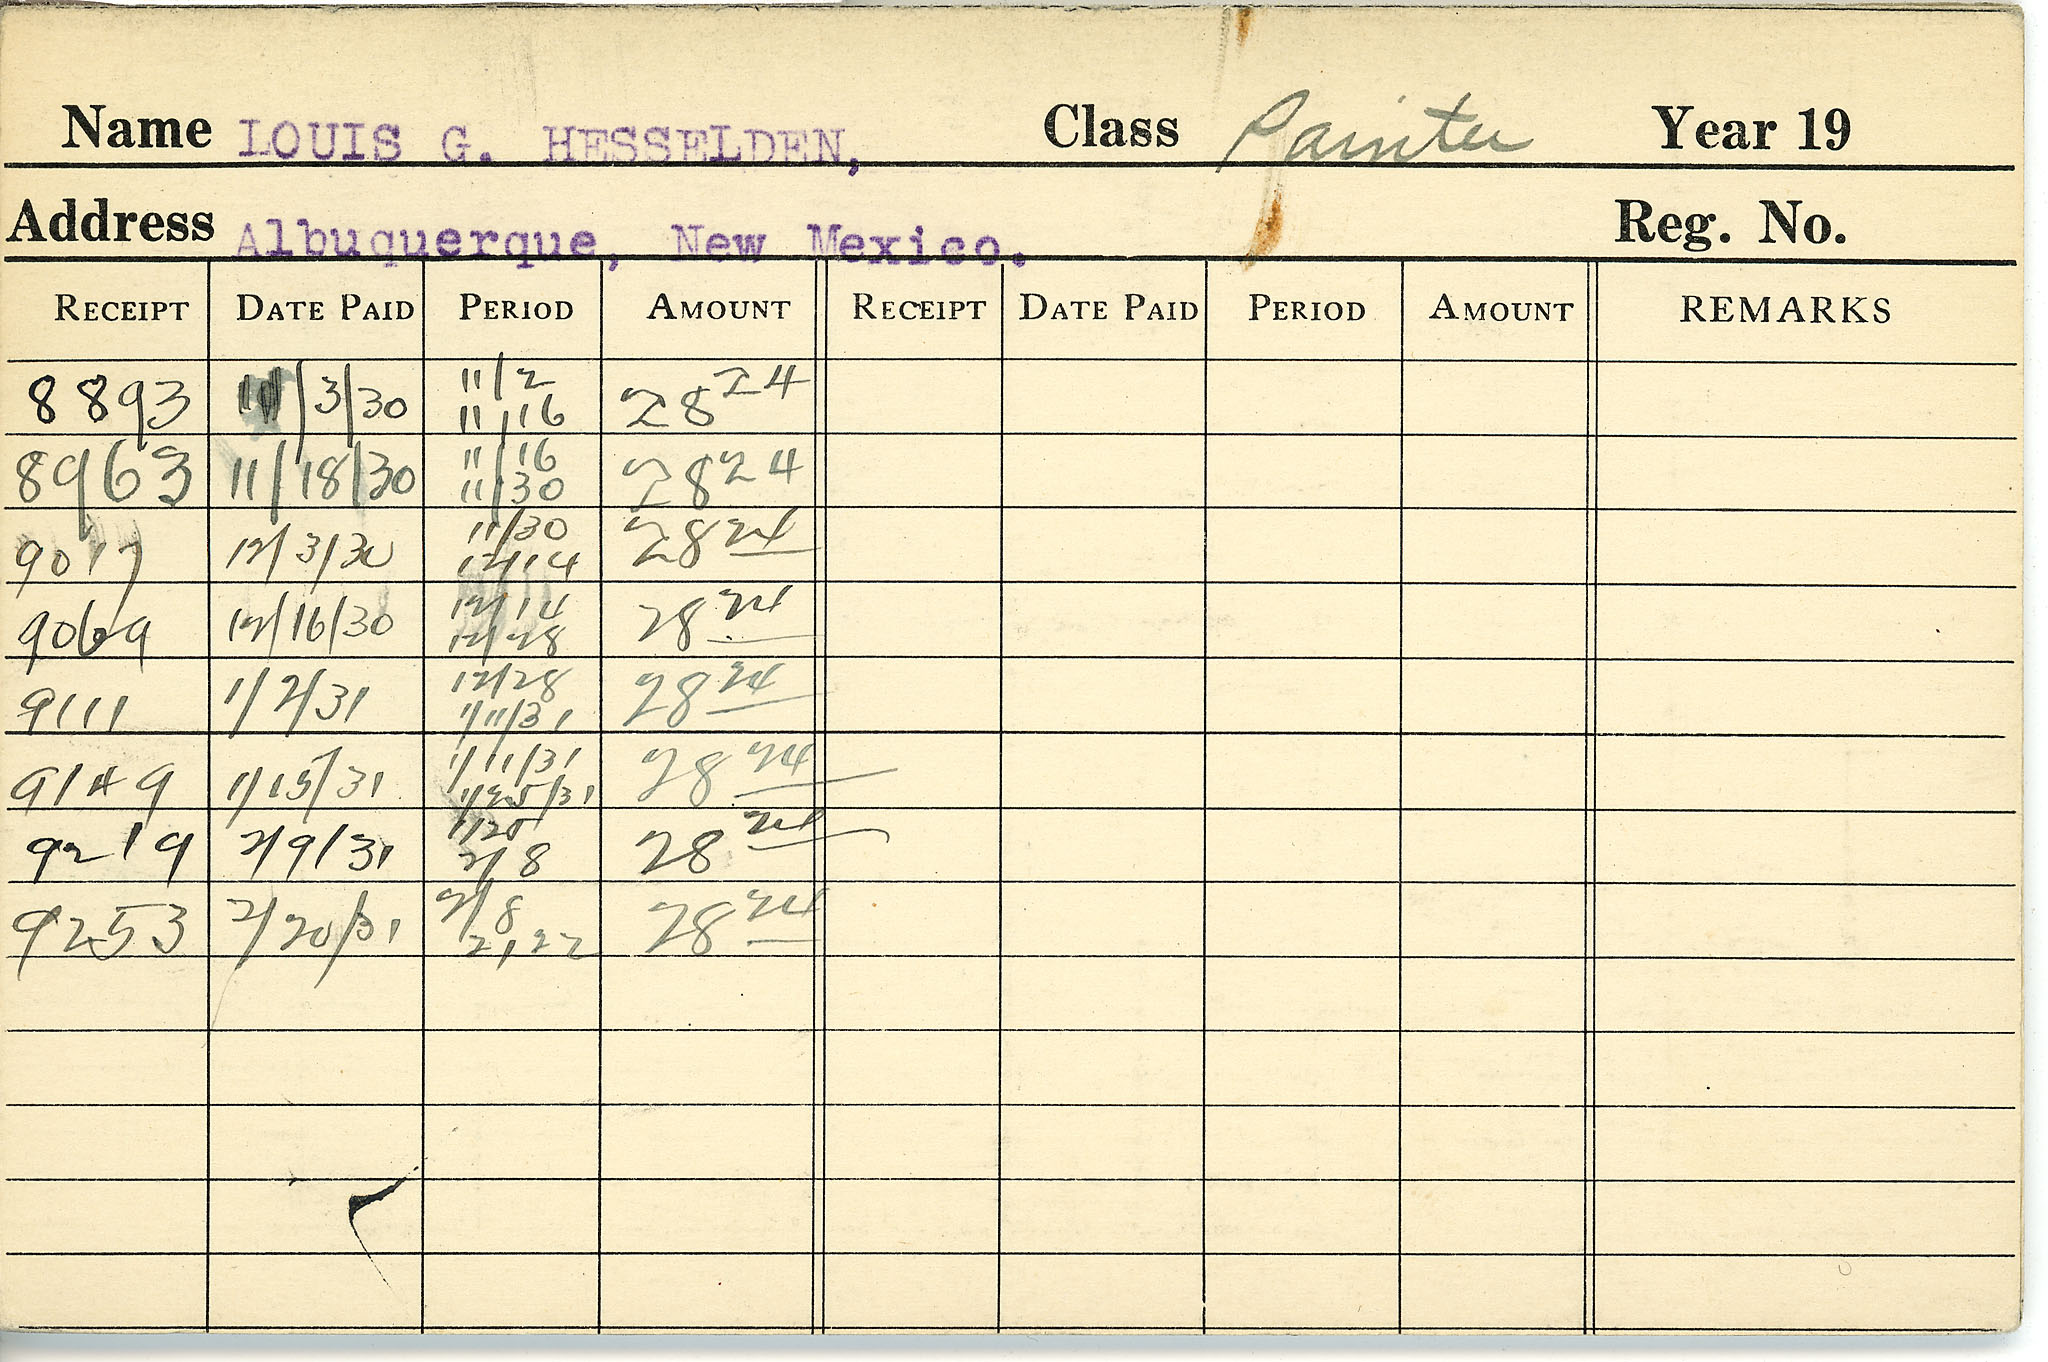 Name LOUIS G. HESSELDEN, Class Painter Year 19
Address Albuquerque, New Mexico. Reg. No.
RECEIPT DATE PAID PERIOD AMOUNT RECEIPT DATE PAID PERIOD AMOUNT REMARKS
8893 11/3/30 11/2 11/16 28 24
8963 11/18/30 11/16 11/30 28 24
9017 12/3/30 11/30 12/14 28 24
9069 12/16/30 12/14 12/28 28 24
9111 1/2/31 12/28 1/11/31 28 24
9149 1/15/31 1/11/31 1/25/31 28 24
9219 2/9/31 1/25 2/8 28 24
9253 2/20/31 2/8 2/22 28 24